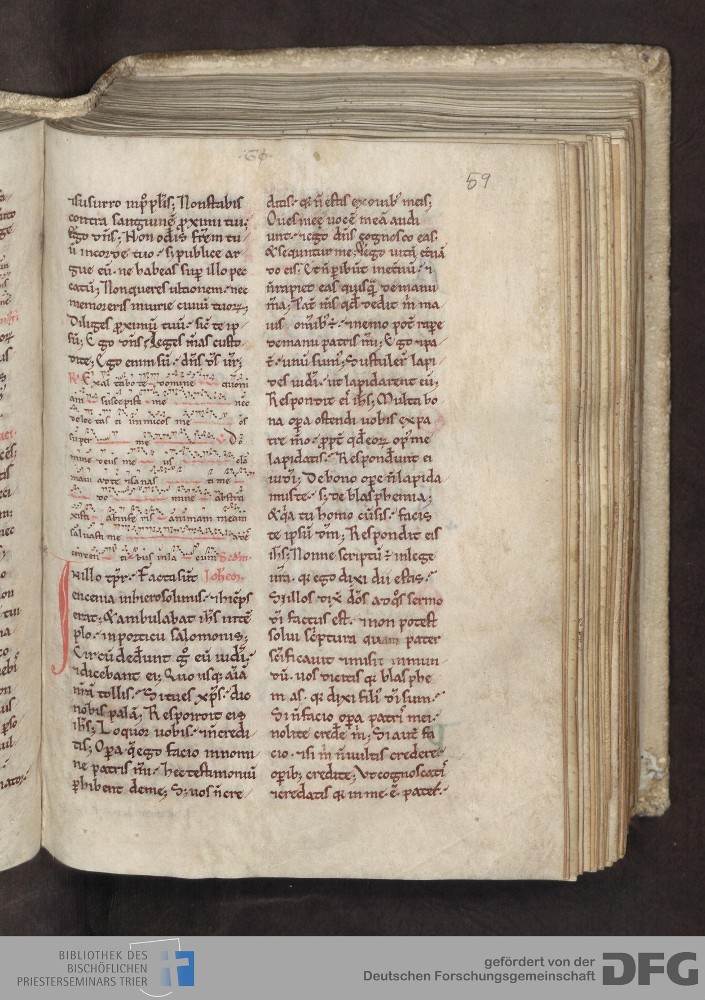 59
susurro inp̄ plis; Non stabis
contra sanguinē proximi tui;
Ego dn̄s; Non oderis frēm tu
ū in corde tuo. s; publice ar
gue eū. ne habeas sup illo pec
catū; Non queres ultionem. nec
memor eris iniurie ciuiū tuorꝝ;
Diliges proximū tuū. sic̄ te ip
sū; Ego dn̄s; Leges m̄as custo
dite; Ego enim sū. dn̄s ds̄ ur̄;
Exaltabo te domine quoni
am suscepisti me nec
delectasti inimicos me os
super me Do
mine deus me us cla
maui ad te et sanas ti me
do mine abstra
xisti ab inferis animam meam
saluasti me a de
scenden ti bus in la cum
In illo tpr̄. Facta sūt Johem
encenia in hierosolimis. et hieps
erat; & ambulabat ihs̄ in tē
plo. in porticu salomonis;
Circūdedunt g̊ eū iudi;
et dicebant ei; Quo usq; aīā
nr̄ām tollis. Si tu es xps̄. dic
nobis palā; Respondit eis
ihs̄; Loquor uobis. et n̄ credi
tis; Opa q̄ ego facio in nomi
ne patris mī. hec testimoniū
phibent de me; S; uos n̄ cre
ditis. q̄ n̄ estis ex ouib; meis;
Oues mee uocē meā audi
unt. et ego dn̄s cognosco eas;
& sequuntur me; et ego uitā etnā
do eis. Et n̄ peribūt in etnū. et
n̄ rapiet eas quisq̄ de manu
m̄a; Pat̄ m̄s qd̄ dedit m̄ ma
ius omib; ē. et nemo pot̄ rape
de manu patris mī; Ego et pa
t̄ unū sum; Sustuler̄ lapi
des iudi. ut lapidarent eū;
Respondit ei ihs̄; Multa bo
na opa ostendi uobis ex pa
tre mō. propt̄ qd̄ eorꝝ op; me
lapidatis. Respondunt ei
iudi; De bono ope n̄ lapida
mus te. s; de blasphemia;
& q̄a tu homo cū sis. facis
te ipsū dm̄; Respondit eis
ihs̄; Nonne scriptū ē in lege
ur̄a. q̄ ego dixi dii estis.
Si illos dix̄ dōs ad q̊s sermo
di factus est. et non potest
solui scriptura quam pater
scīficauit et misit in mun
dū. uos dicitis q̄ blasphe
mas. q̄ dixi fili di sum.
Si n̄ facio opa patri mei.
nolite crede m̄; Si aut̄ fa
cio. et si m̄ n̄ uultis credere.
opib; credite; Ut cognoscati
et credatis q̄ in me ē pater.
BIBLIOTHEK DES
BISCHÖFLICHEN
PRIESTERSEMINARS TRIER
gefördert von der
Deutschen Forschungsgemeinschaft
DFG